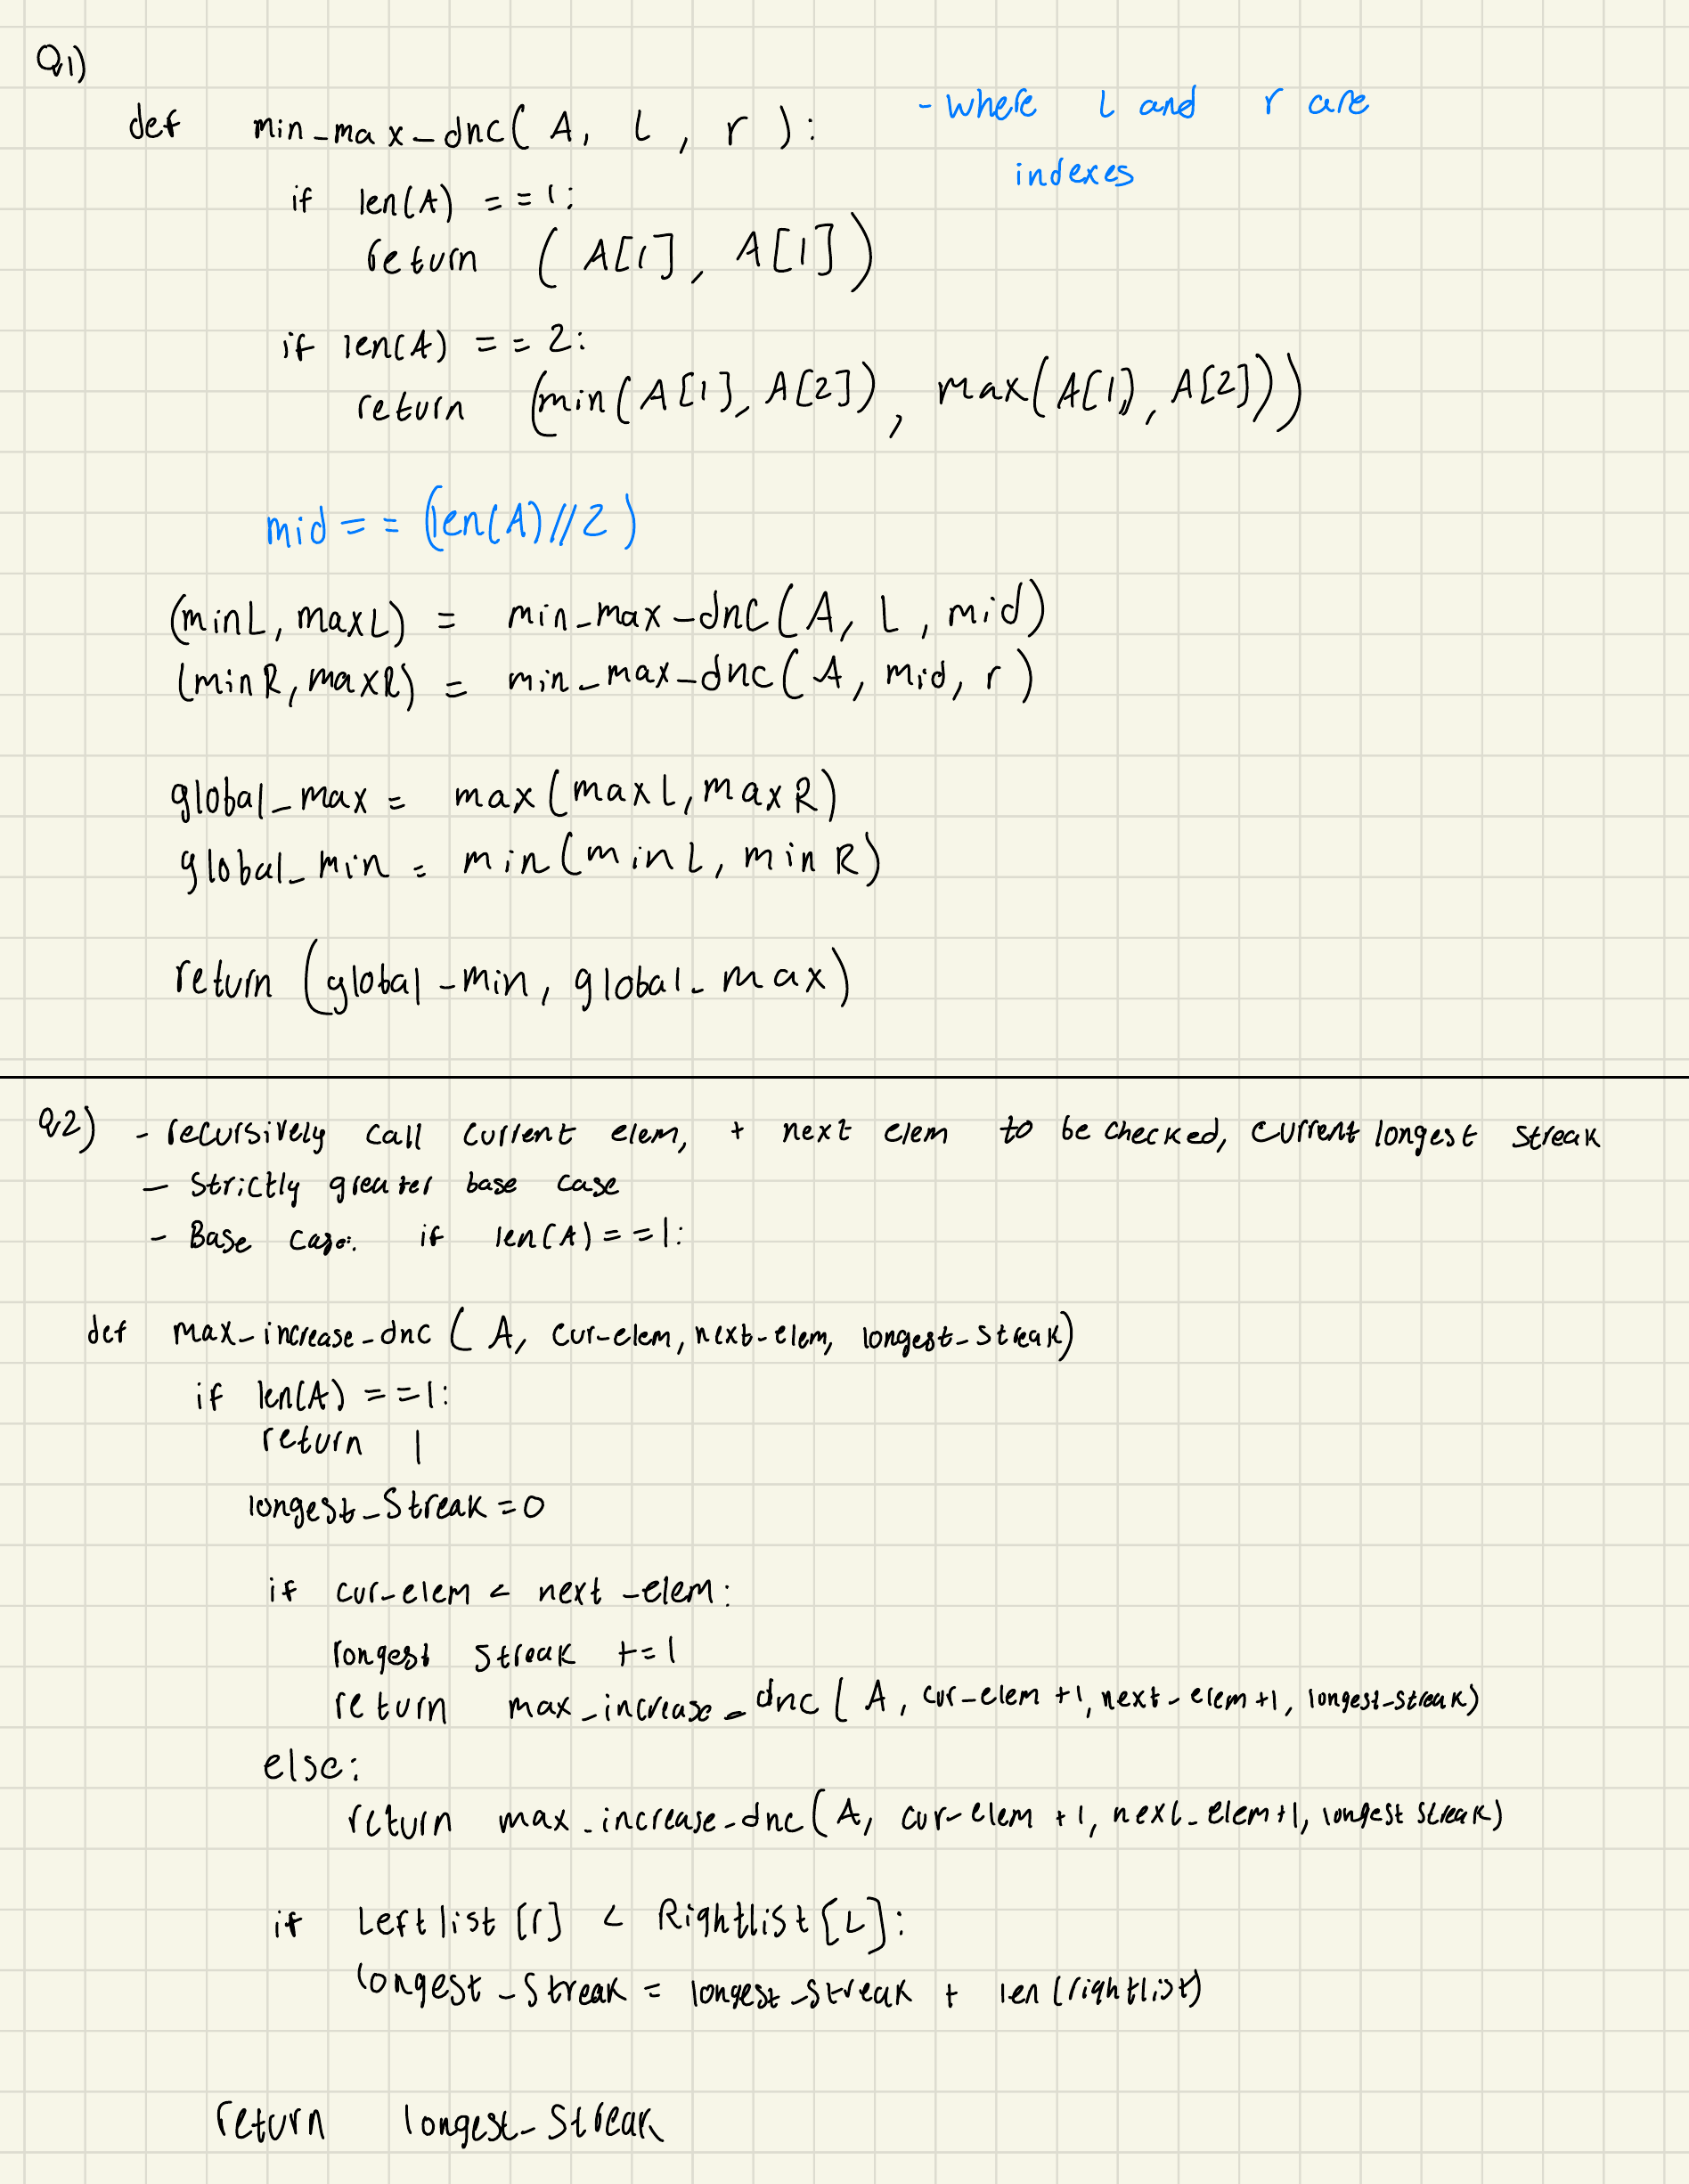 Q1)
def min_max_dnc( A, L , r ): - where L and r are
indexes
if len(A) == 1:
return ( A[1], A[1])
if len(A) == 2:
return (min( A[1], A[2]) , max(A[1], A[2]))
mid == (len(A)//2)
(minL, maxL) = min_max_dnc( A, L , mid)
(minR, maxR) = min_max_dnc( A, mid, r )
global_max = max(maxL, maxR)
global_min = min(minL, minR)
return (global_min, global_max)
Q2) - recursively call current elem, + next elem to be checked, current longest streak
- Strictly greater base case
- Base case: if len(A) == 1:
def max_increase_dnc ( A, cur-elem, next-elem, longest-streak)
if len(A) == 1:
return 1
longest_streak = 0
if cur-elem < next-elem:
longest streak += 1
return max_increase_dnc ( A, cur-elem +1, next-elem+1, longest-streak)
else:
return max_increase_dnc( A, cur-elem +1, next_elem+1, longest streak)
if Leftlist [r] < Rightlist [L]:
longest_streak = longest_streak + len(rightlist)
return longest_streak